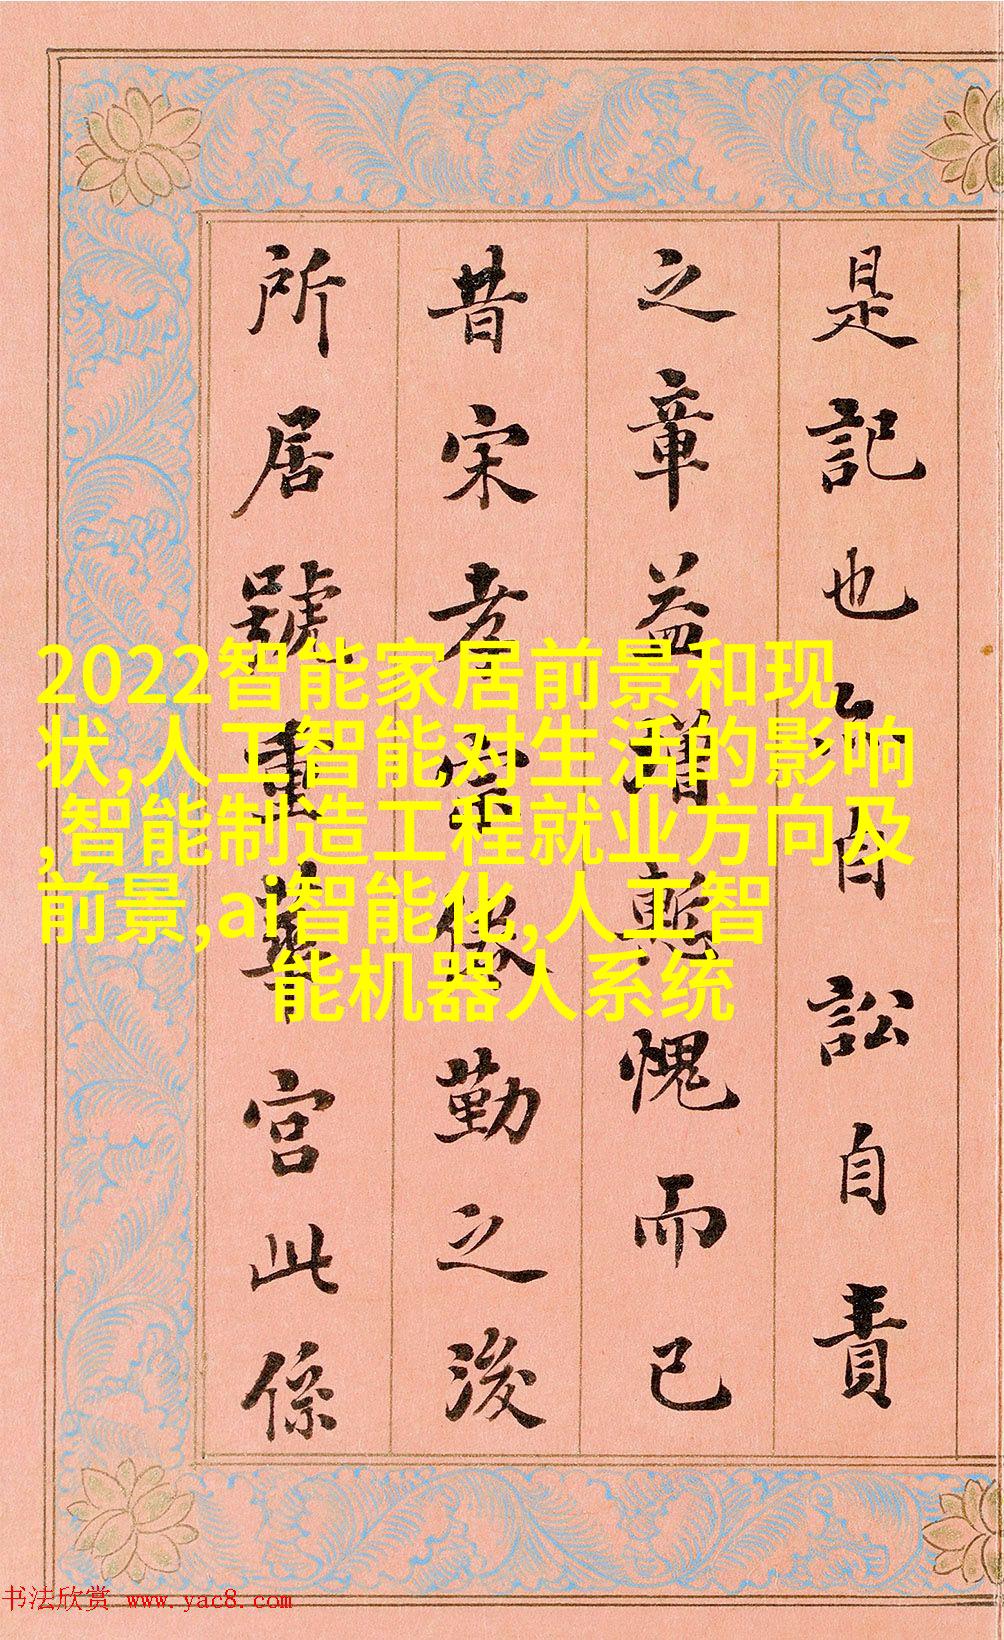 是記也自訟自責
之章益增慙愧而已
昔宋孝宗倦勤之後
所居號重華宮此係
2022智能家居前景和现
状,人工智能对生活的影响
,智能制造工程就业方向及
前景,ai智能化,人工智
能机器人系统
书法欣赏 www.yac8.com